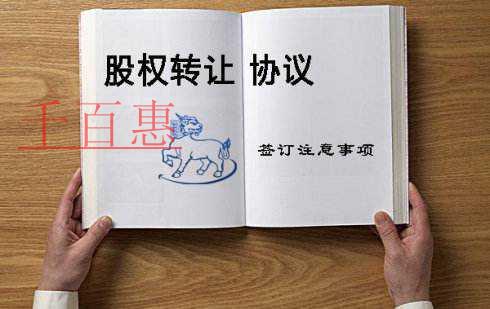 股权转让 协议
壬百惠
签订注意事项